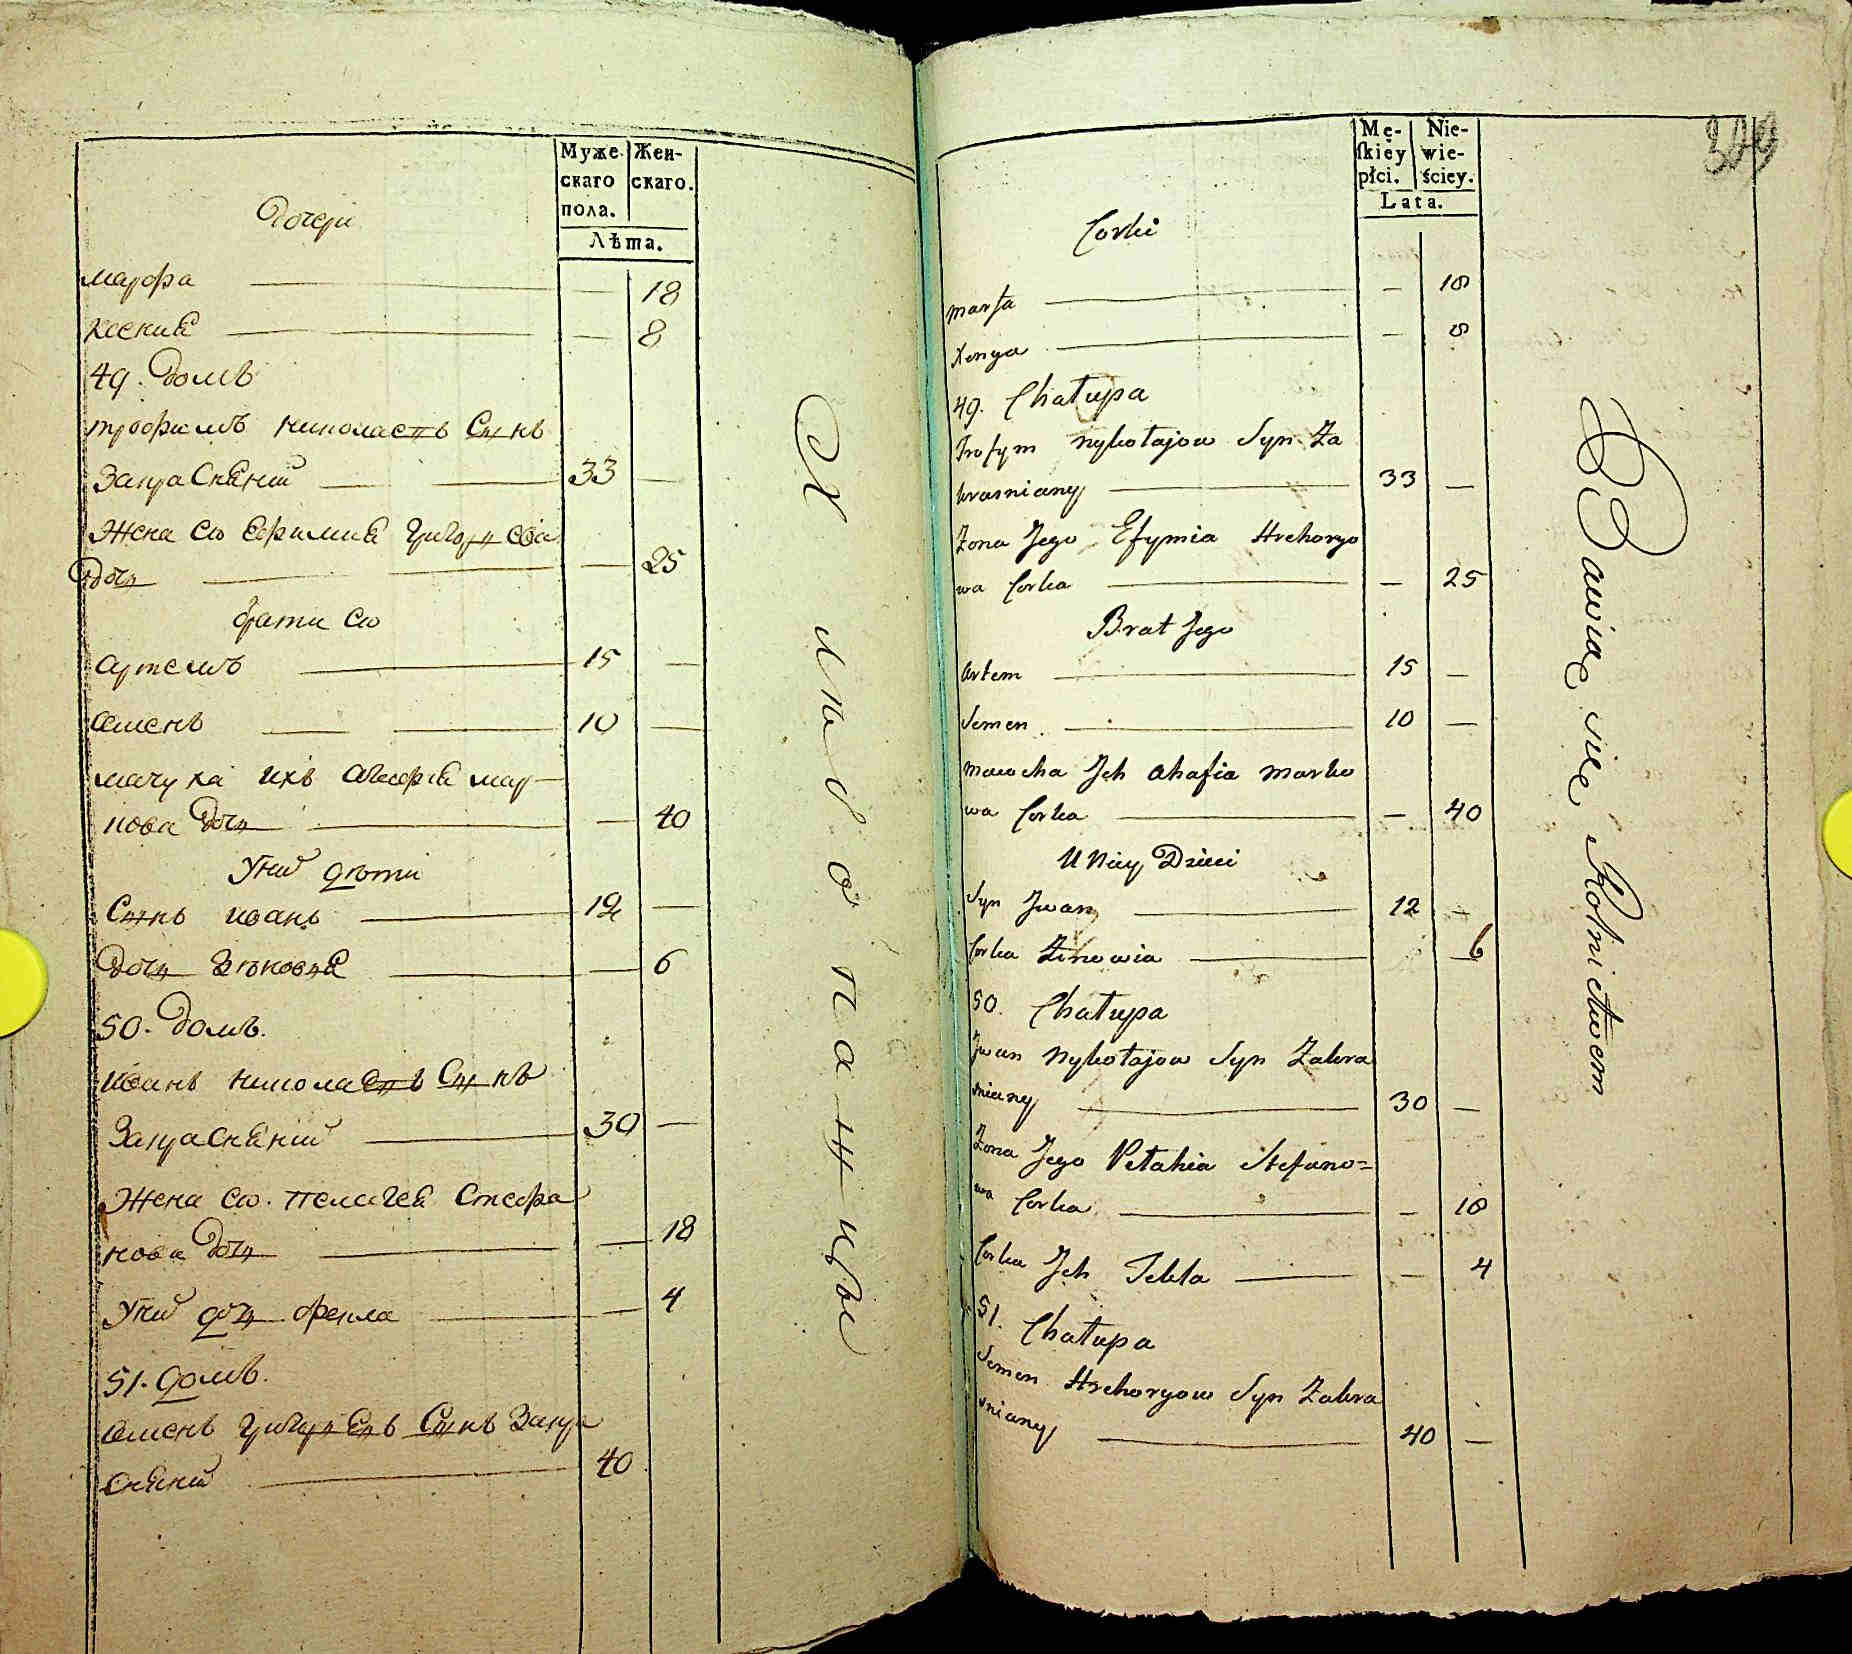 Муже-
скаго
пола.
Жен-
скаго.
Лѣта.
Дочери
марфа — — 18
ксения — — 8
49. домъ
трофимъ николаевъ Сынъ
Закраснянии — 33 —
Жена его Ефимия Григориева
дочь — — 25
брати его
артемъ — 15 —
семенъ — 10 —
мачуха ихъ агафия мар-
кова дочь — — 40
У нии дѣти
Сынъ иванъ — 12 —
дочь Зѣновия — — 6
50. домъ.
иванъ николаевъ Сынъ
Закраснянии — 30 —
Жена его пелагея Стефа
нова дочь — — 18
У нии дочь фекла — — 4
51. домъ.
семенъ Григориевъ Сынъ Закра
снянии — 40
Хлѣбопашцы
309
Mę-
skiey
płci.
Nie-
wie-
ściey.
Lata.
Corki
marfa — — 18
Xenya — — 8
49. Chałupa
Trofym nykołajow Syn Za
krasniany — 33 —
Zona Jego Efymia Hrehoryo
wa Corka — — 25
Brat Jego
artem — 15 —
Semen — 10 —
macocha Jch ahafia marko
wa Corka — — 40
U Niey Dzieci
Syn Jwan — 12 —
Corka Zinowia — 6
50. Chałupa
Jwan Nykołajow Syn Zakra
sniany — 30 —
Zona Jego Pełahia Stefano=
wa Corka — — 18
Corka Jch Tekla — — 4
51. Chałupa
Semen Hrehoryow Syn Zakra
sniany — 40 —
Bawiąc się Rolnictwem